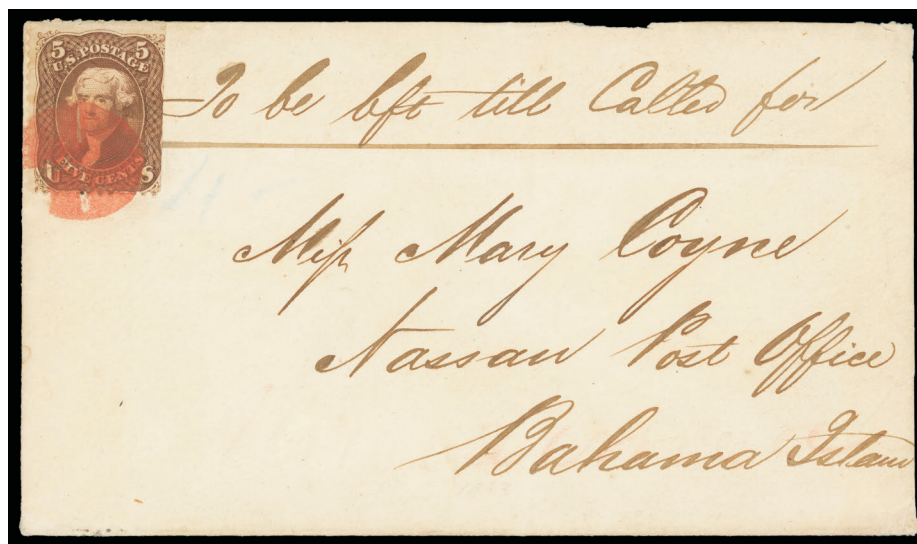 5 5
U.S. POSTAGE
FIVE CENTS
U S
To be left till Called for
Miss Mary Coyne
Nassau Post Office
Bahama Island